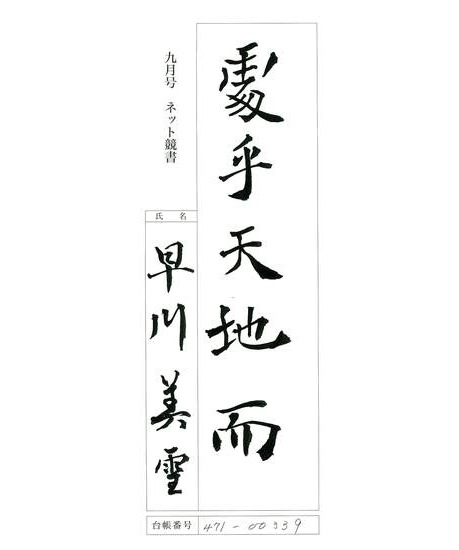 處乎天地而
九月号 ネット競書
氏 名
早川美雪
台帳番号 471-00339